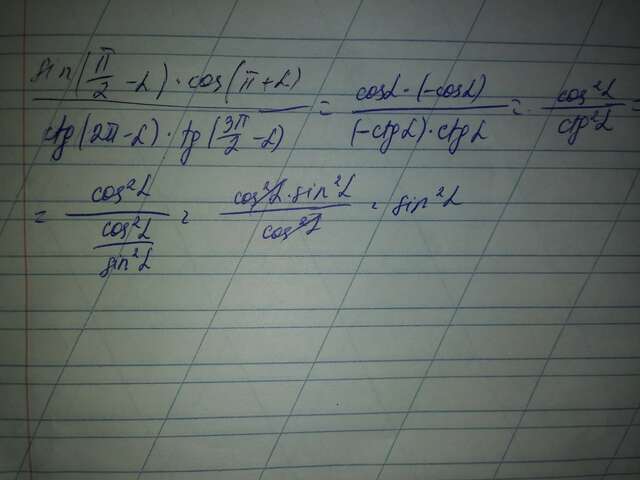 sin(π/2 - α) · cos(π + α) / ctg(2π - α) · tg(3π/2 - α) = cosα · (-cosα) / (-ctgα) · ctgα = cos²α / ctg²α =
= cos²α / (cos²α / sin²α) = cos²α · sin²α / cos²α = sin²α